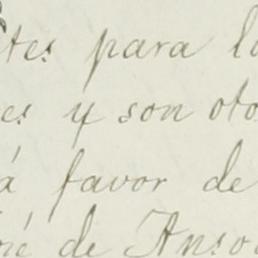 tes para la
es y son oto
á favor de
né de Anso